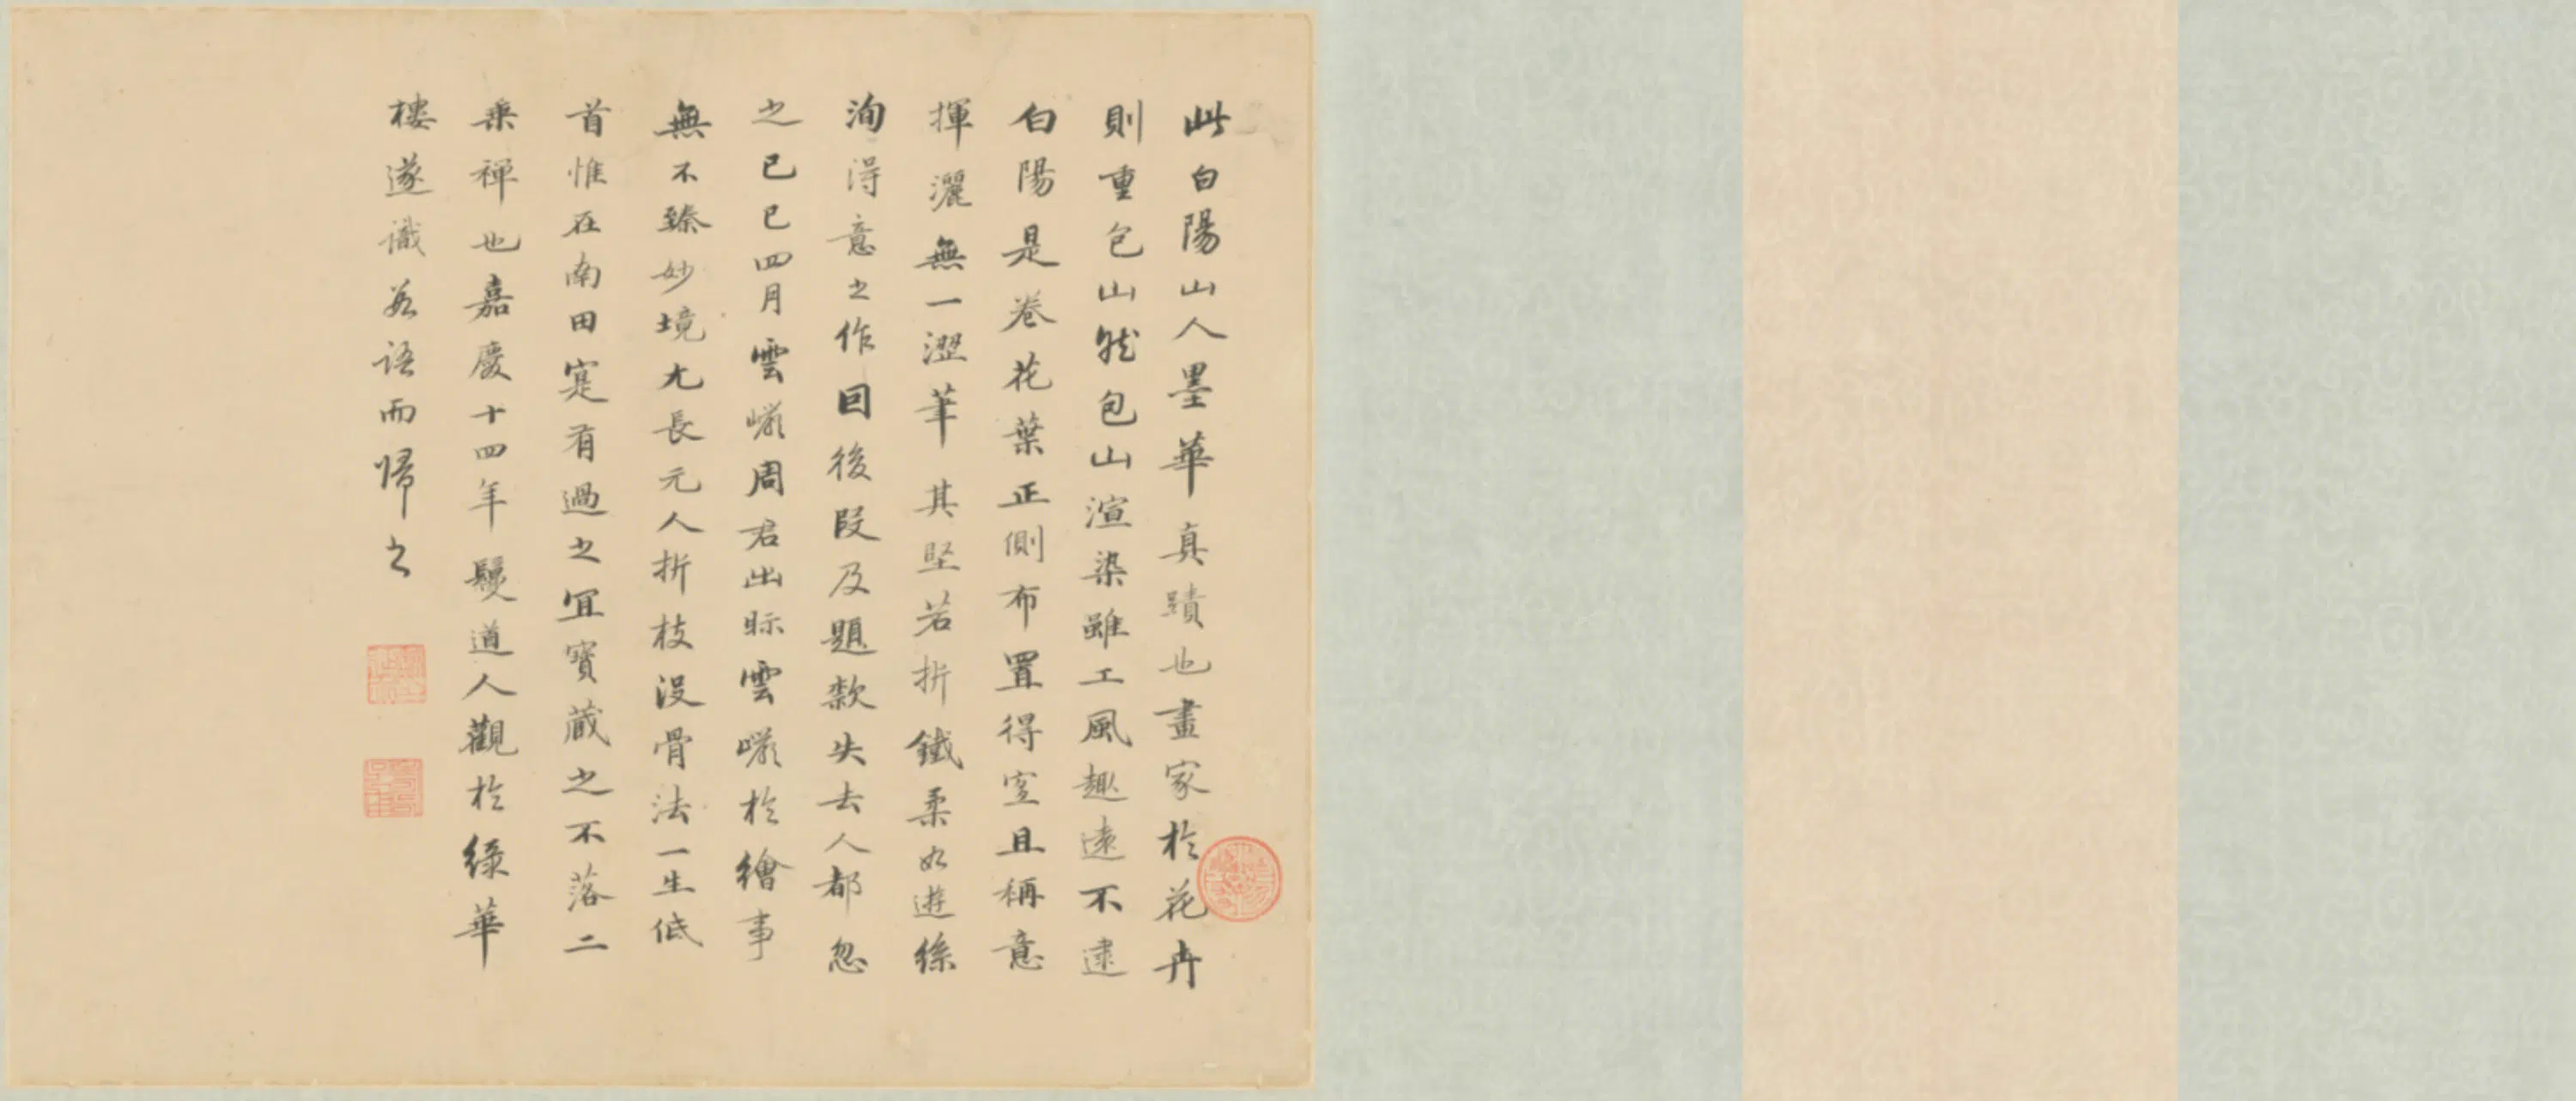 此白陽山人墨華真蹟也畫家於花卉
則重包山然包山渲染雖工風趣遠不逮
白陽是卷花葉正側布置得宜且稱意
揮灑無一澀筆其堅若折鐵柔如遊絲
洵得意之作因後段及題款失去人都忽
之己巳四月雲巖周君出眎雲巖於繪事
無不臻妙境尤長元人折枝沒骨法一生低
首惟在南田寔有過之宜寶藏之不落二
乘禪也嘉慶十四年鬘道人觀於綠華
樓遂識數語而歸之